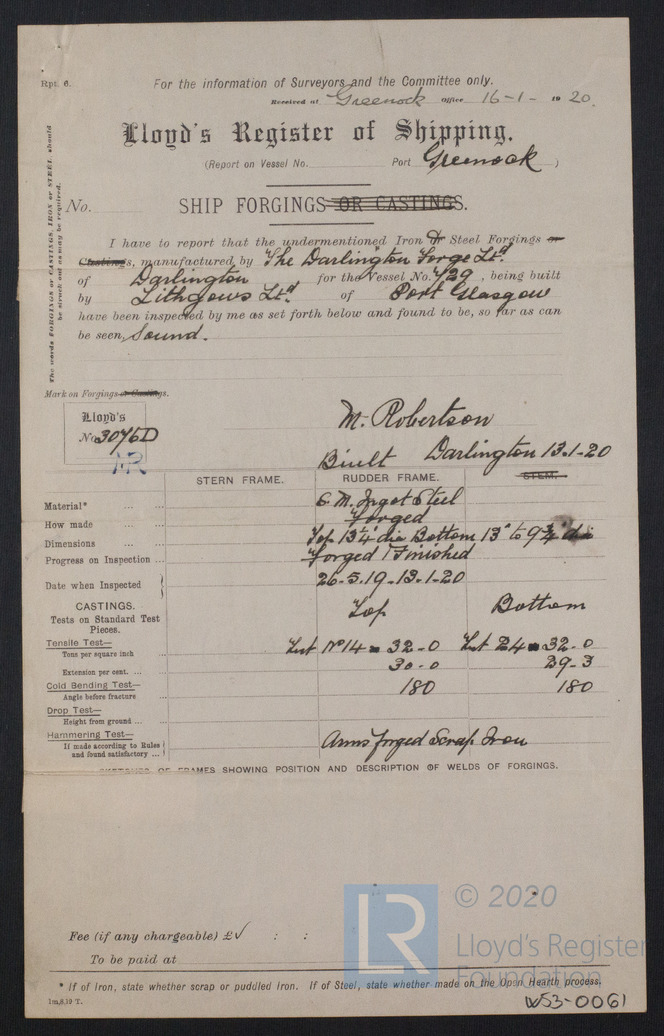 Rpt. 6.
For the information of Surveyors and the Committee only.
Received at Greenock Office 16-1- 1920.
Lloyd's Register of Shipping.
(Report on Vessel No. Port Greenock )
No. SHIP FORGINGS OR CASTINGS.
The words FORGINGS or CASTINGS, IRON or STEEL should
be struck out as may be required.
I have to report that the undermentioned Iron Or Steel Forgings or
Castings, manufactured by The Darlington Forge Ltd
of Darlington for the Vessel No. 729, being built
by Lithgows Ltd. of Port Glasgow
have been inspected by me as set forth below and found to be, so far as can
be seen, Sound.
Mark on Forgings or Castings.
Lloyd's
No 3076D
M. Robertson
Built Darlington 13.1-20
STERN FRAME. RUDDER FRAME. STEM.
Material* S.M. Ingot Steel
How made Forged
Dimensions Top 13¼" dia Bottom 13" to 9¾ dia
Progress on Inspection Forged & Finished
Date when Inspected 26-5.19-13-1-20
CASTINGS. Top Bottom
Tests on Standard Test
Pieces.
Tensile Test—
Tons per square inch Test No 14 = 32-0 Test 24 = 32-0
Extension per cent. 30-0 29-3
Cold Bending Test— 180 180
Angle before fracture
Drop Test—
Height from ground
Hammering Test—
If made according to Rules
and found satisfactory Arms forged Scrap Iron
SKETCHES OF FRAMES SHOWING POSITION AND DESCRIPTION OF WELDS OF FORGINGS.
© 2020
LR Lloyd's Register
Foundation
Fee (if any chargeable) £✓ : :
To be paid at
* If of Iron, state whether scrap or puddled iron. If of Steel, state whether made on the Open Hearth process.
1m,8,19 T.
W53-0061